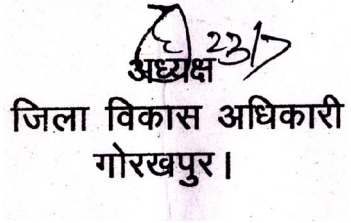 23/7
अध्यक्ष
जिला विकास अधिकारी
गोरखपुर।